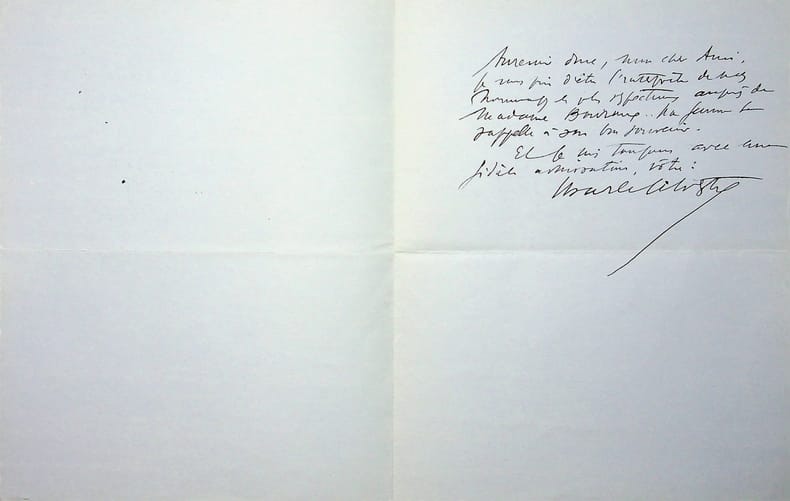 Au revoir donc, mon cher Ami,
je vous prie d'être l'interprète de mes
hommages les plus respectueux auprès de
Madame .. Ma femme se
rappelle à son bon souvenir.
Et je suis toujours avec une
fidèle admiration, vôtre :